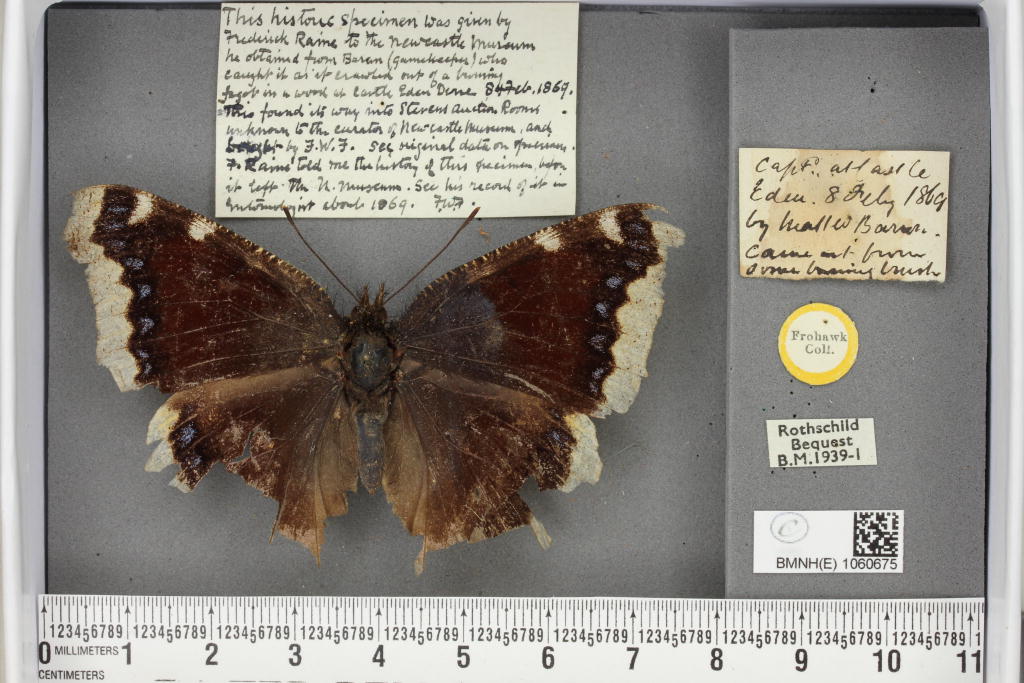 This historic specimen was given by
Frederick Raine to the Newcastle Museum
he obtained from Baron (gamekeeper) who
caught it as it crawled out of a burning
fagot in a wood at Castle Eden Dene 8 Feb. 1869.
This found its way into Stevens Auction Rooms
unknown to the curator of Newcastle Museum, and
bought by F.W.F. See original data on
F. Raine told me the history of this specimen, before
it left the N. Museum. See his record of it in
Entomologist about 1869. F.W.F.
Captd. at Castle
Eden. 8 Feby 1869
by Baron.
Came out from
some burning brush
Frohawk
Coll.
Rothschild
Bequest
B.M.1939-1
C
BMNH(E) 1060675
123456789 123456789 123456789 123456789 123456789 123456789 123456789 123456789 123456789 123456789 123456789
0 MILLIMETERS 1 2 3 4 5 6 7 8 9 10 11
CENTIMETERS